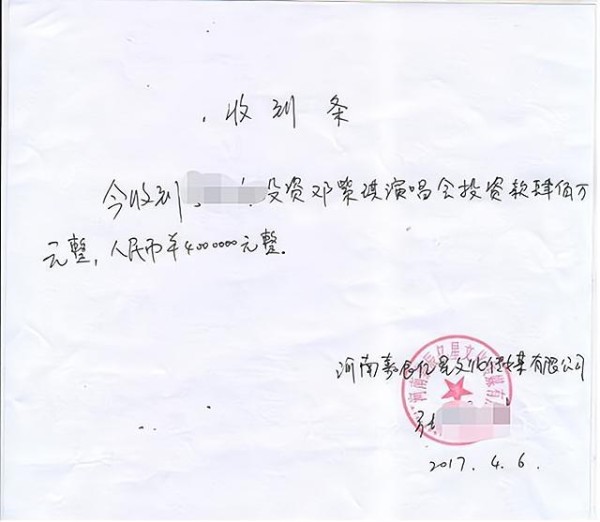 收到条
今收到投资邓紫琪演唱会投资款肆佰万
元整，人民币￥4000000元整.
河南嘉辰亿星文化传媒有限公司
2017.4.6.